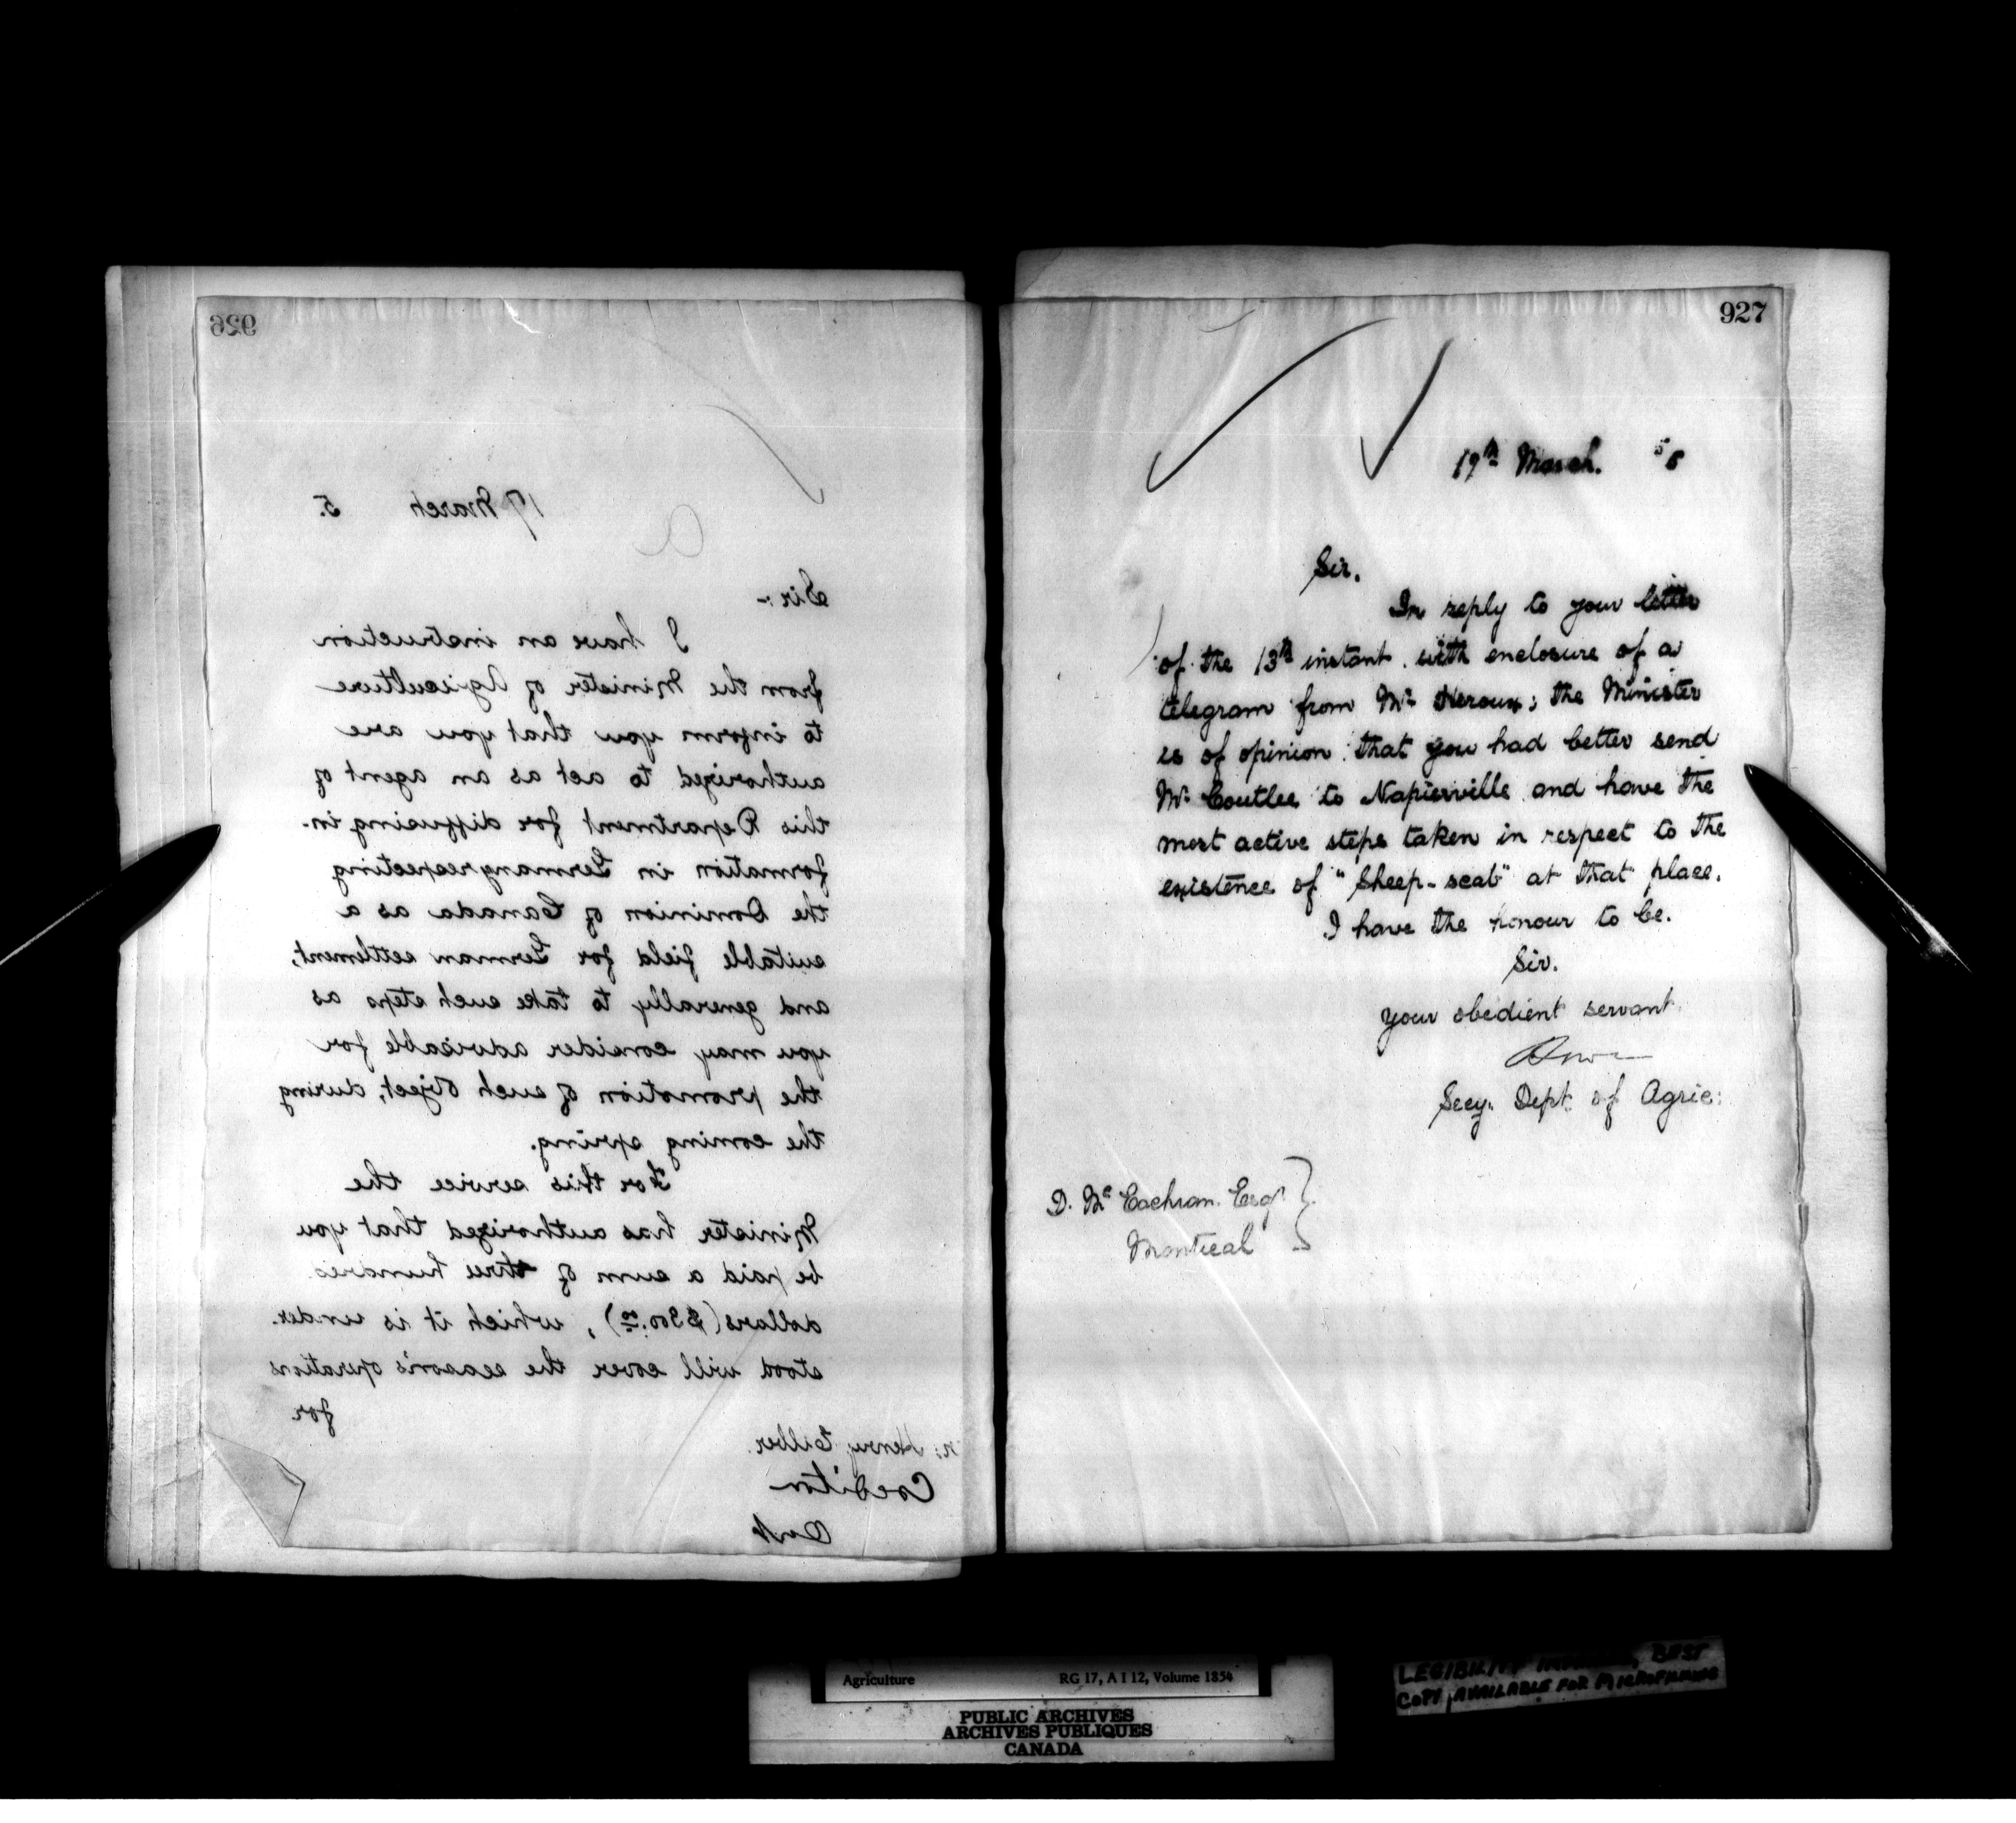 926
17 March 5.
Sir:-
I have an instruction
from the Minister of Agriculture
to inform you that you are
authorized to act as an agent of
this Department for diffusing in-
formation in Germany respecting
the Dominion of Canada as a
suitable field for German settlement,
and generally to take such steps as
you may consider advisable for
the promotion of such object, during
the coming spring.
For this service the
Minister has authorized that you
be paid a sum of three hundred
dollars ($300.00), which it is under-
stood will cover the season's operations
for
Henry
927
19th March. 5
Sir.
In reply to your letter
of the 13th instant with enclosure of a
telegram from Mr Heroux; the Minister
is of opinion that you had better send
Mr Coutlee to Napierville and have the
most active steps taken in respect to the
existence of "Sheep-scab" at that place.
I have the honour to be.
Sir.
your obedient servant
Secy. Dept of Agric:
D. Mc Eachran. Esqr
Montreal
Agriculture RG 17, A I 12, Volume 1854
PUBLIC ARCHIVES
ARCHIVES PUBLIQUES
CANADA
LEGIBILITY BEST
COPY AVAILABLE FOR MICROFILMING